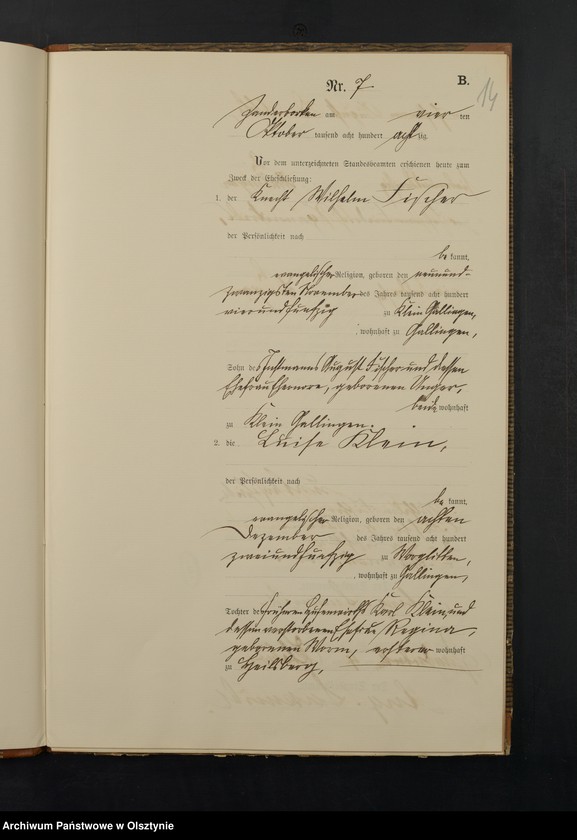 B.
14
Nr. 7
am vier ten
Oktober tausend acht hundert achtzig
Vor dem unterzeichneten Standesbeamten erschienen heute zum
Zweck der Eheschließung:
1. der Knecht Wilhelm Fischer
der Persönlichkeit nach
be kannt,
evangelischer Religion, geboren den neunund-
zwanzigsten November des Jahres tausend acht hundert
vierundfunfzig zu Klein Gallingen,
, wohnhaft zu Gallingen,
Sohn des August Fischer und dessen
Ehefrau geborenen Unger,
beide wohnhaft
zu Klein Gallingen.
2. die Luise Klein,
der Persönlichkeit nach
be kannt,
evangelischer Religion, geboren den achten
Dezember des Jahres tausend acht hundert
zweiundfunfzig zu Worglitten,
, wohnhaft zu Gallingen,
Tochter des früheren Karl Klein, und
dessen verstorbenen Ehefrau Regina,
geborenen Worm, ersterer wohnhaft
zu Heilsberg,
Archiwum Państwowe w Olsztynie